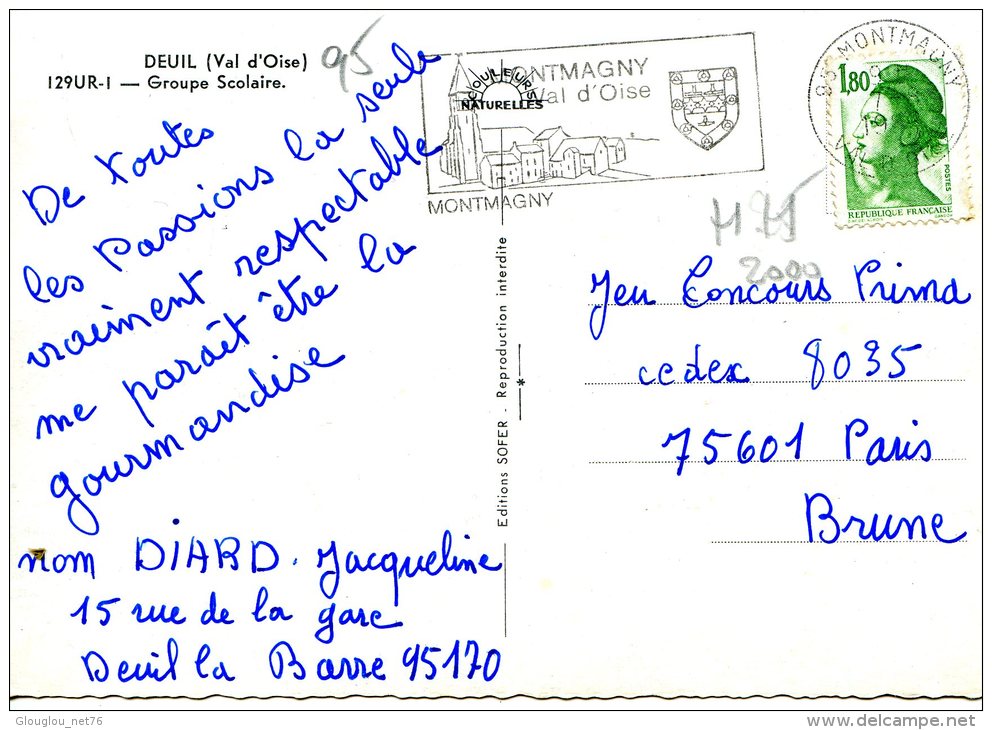 DEUIL (Val d'Oise)
129UR-I — Groupe Scolaire.
95
De toutes
les Passions la seule
vraiment respectable
me paraît être la
gourmandise
nom DIARD. Jacqueline
15 rue de la gare
Deuil la Barre 95170
Editions SOFER - Reproduction interdite
COULEURS
NATURELLES
MONTMAGNY
Val d'Oise
MONTMAGNY
95 MONTMAGNY
1,80
POSTES
REPUBLIQUE FRANÇAISE
2000
Jeu Concours Prima
cedex 8035
75601 Paris
Brune
Glouglou_net76
www.delcampe.net